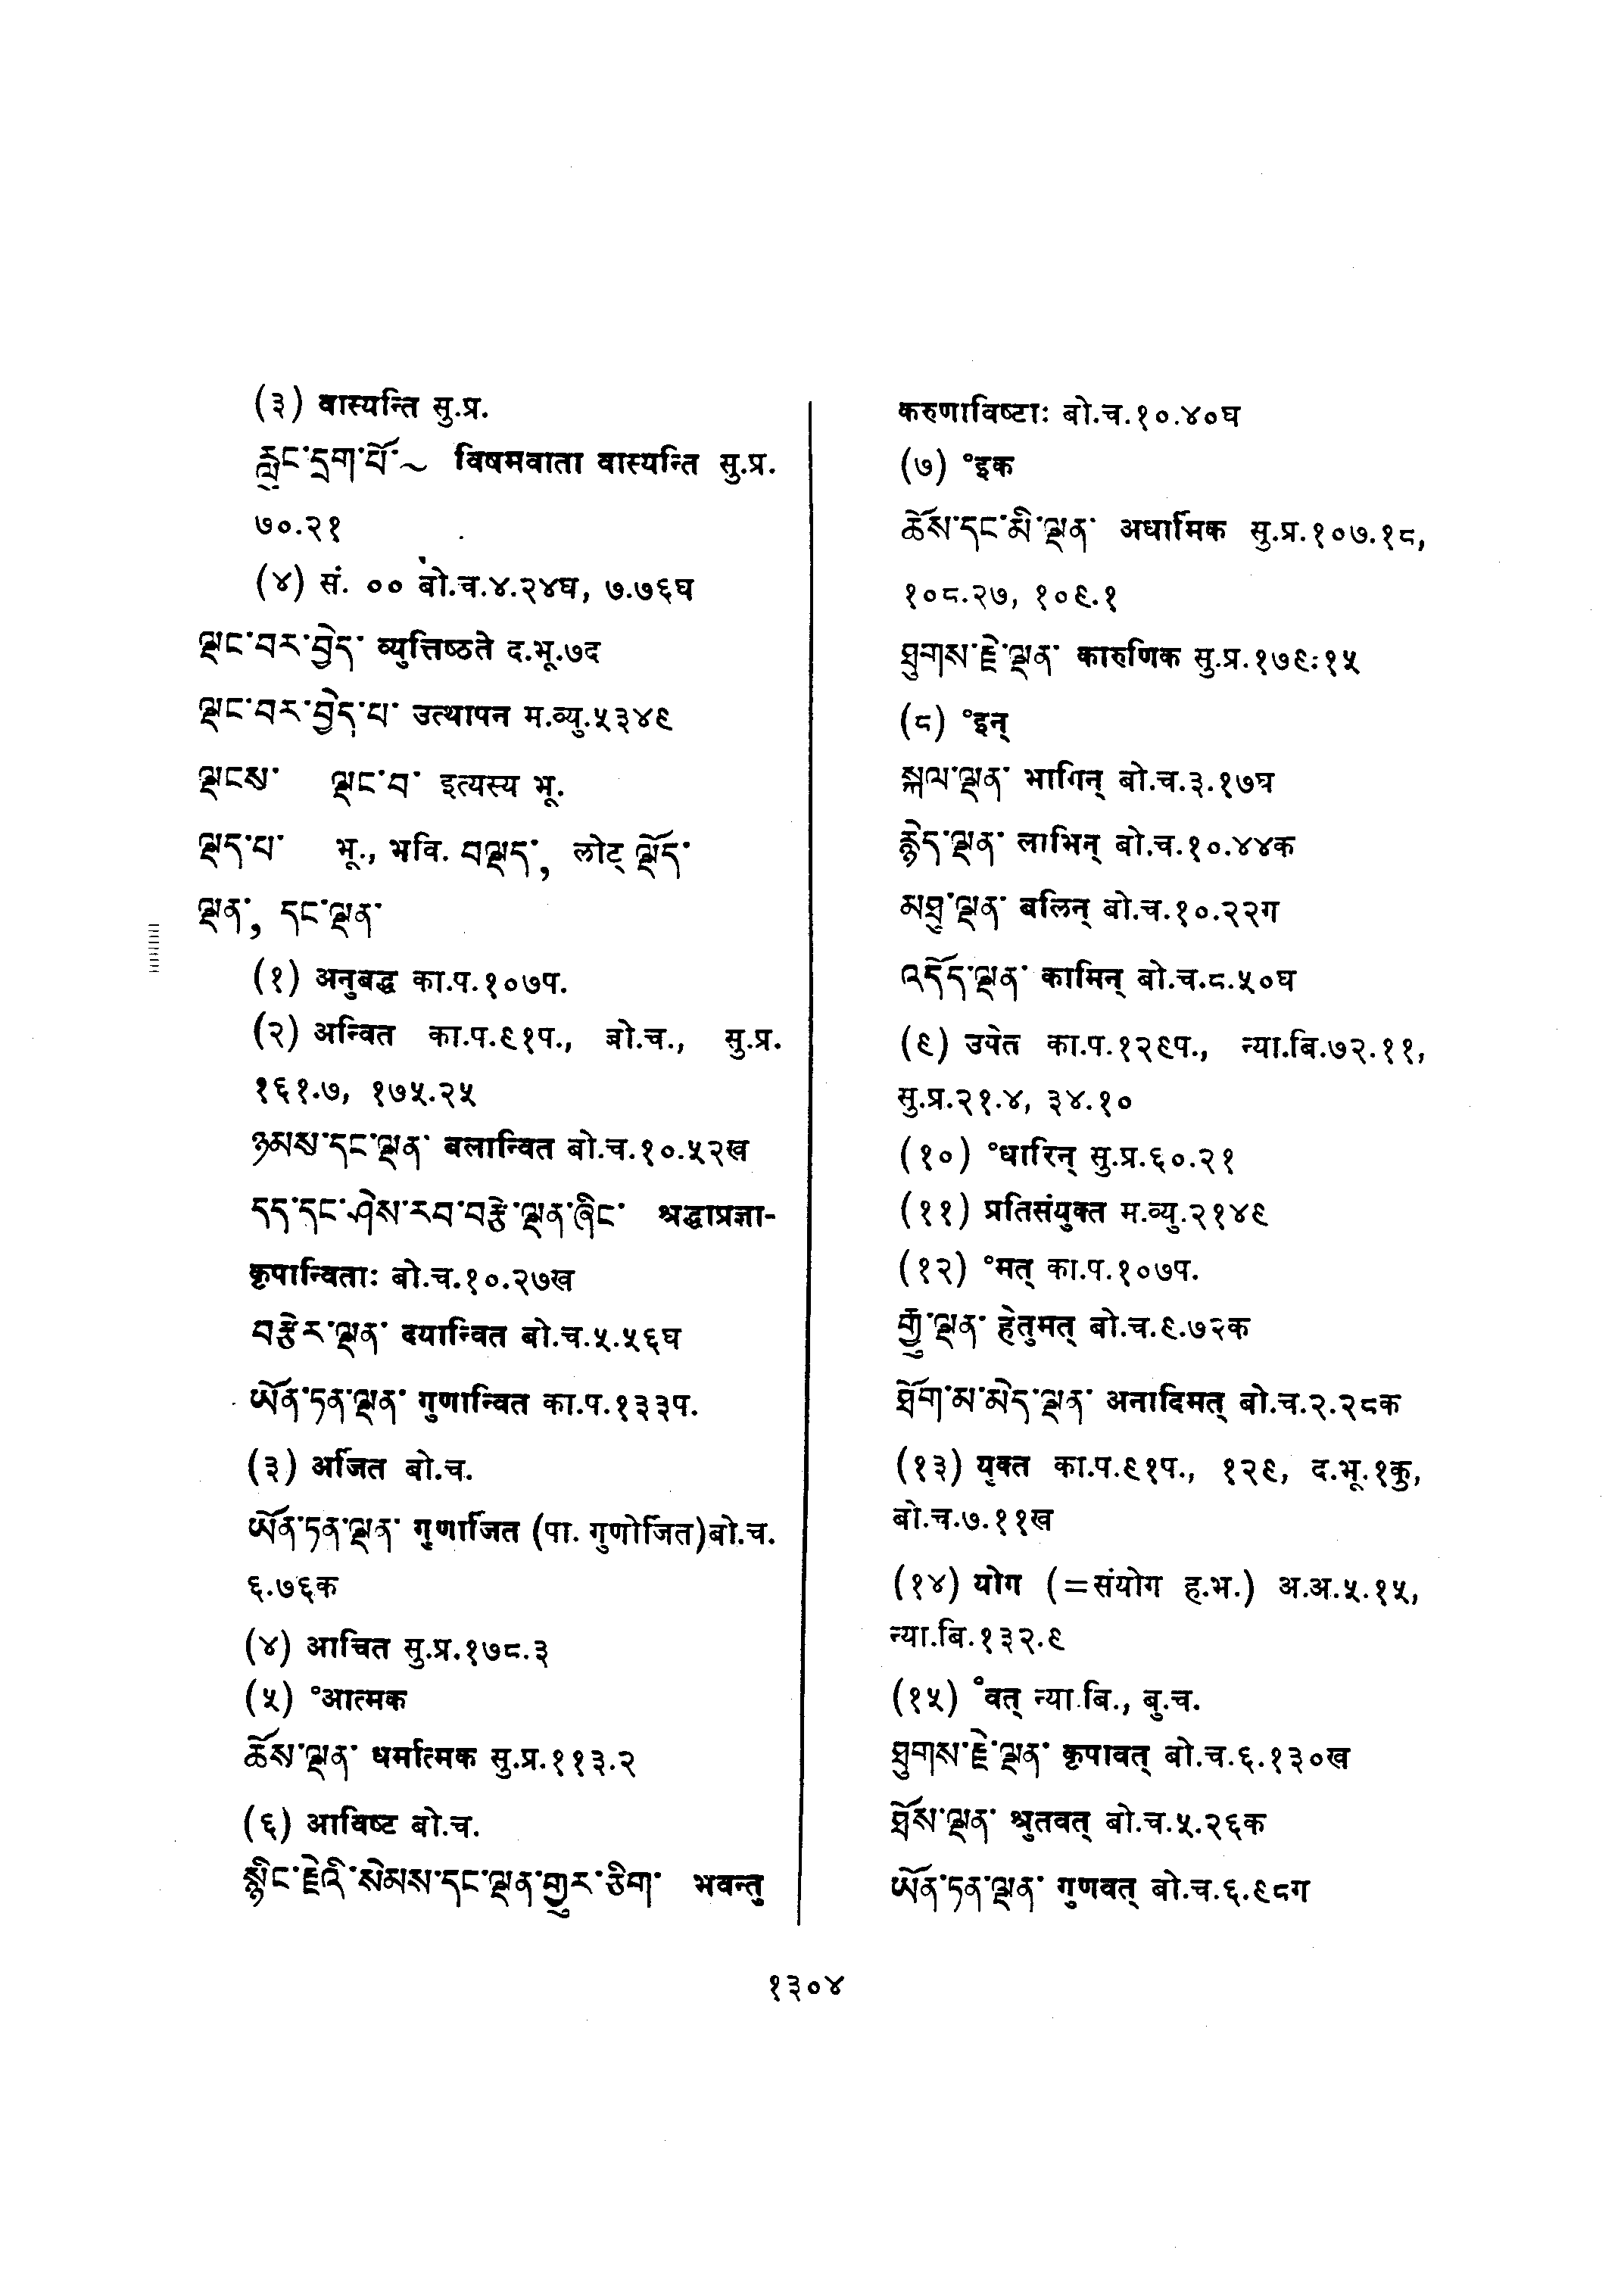 (३) वास्यन्ति सु.प्र.
རླུང་དྲག་པོ་~ विषमवाता वास्यन्ति सु.प्र.
७०.२१
(४) सं. ०० बो.च.४.२४घ, ७.७६घ
ལྡང་བར་བྱེད་ व्युत्तिष्ठते द.भू.७द
ལྡང་བར་བྱེད་པ་ उत्थापन म.व्यु.५३४९
ལྡངས་ ལྡང་བ་ इत्यस्य भू.
ལྡད་པ་ भू., भवि. བལྡད་, लोट् ལྡོད་
ལྡན་, དང་ལྡན་
(१) अनुबद्ध का.प.१०७प.
(२) अन्वित का.प.९१प., बो.च., सु.प्र.
१६१.७, १७५.२५
ཉམས་དང་ལྡན་ बलान्वित बो.च.१०.५२ख
དད་དང་ཤེས་རབ་བརྩེ་ལྡན་ཞིང་ श्रद्धाप्रज्ञा-
कृपान्विताः बो.च.१०.२७ख
བརྩེར་ལྡན་ दयान्वित बो.च.५.५६घ
ཡོན་ཏན་ལྡན་ गुणान्वित का.प.१३३प.
(३) अर्जित बो.च.
ཡོན་ཏན་ལྡན་ गुणार्जित (पा. गुणोर्जित)बो.च.
६.७६क
(४) आचित सु.प्र.१७८.३
(५) °आत्मक
ཆོས་ལྡན་ धर्मात्मक सु.प्र.११३.२
(६) आविष्ट बो.च.
སྙིང་རྗེའི་སེམས་དང་ལྡན་གྱུར་ཅིག་ भवन्तु
करुणाविष्टाः बो.च.१०.४०घ
(७) °इक
ཆོས་དང་མི་ལྡན་ अधार्मिक सु.प्र.१०७.१८,
१०८.२७, १०९.१
ཐུགས་རྗེ་ལྡན་ कारुणिक सु.प्र.१७९:१५
(८) °इन्
སྐལ་ལྡན་ भागिन् बो.च.३.१७घ
རྙེད་ལྡན་ लाभिन् बो.च.१०.४४क
མཐུ་ལྡན་ बलिन् बो.च.१०.२२ग
འདོད་ལྡན་ कामिन् बो.च.८.५०घ
(९) उपेत का.प.१२९प., न्या.बि.७२.११,
सु.प्र.२१.४, ३४.१०
(१०) °धारिन् सु.प्र.६०.२१
(११) प्रतिसंयुक्त म.व्यु.२१४९
(१२) °मत् का.प.१०७प.
རྒྱུ་ལྡན་ हेतुमत् बो.च.९.७२क
ཐོག་མ་མེད་ལྡན་ अनादिमत् बो.च.२.२८क
(१३) युक्त का.प.९१प., १२९, द.भू.१कु,
बो.च.७.११ख
(१४) योग (=संयोग ह.भ.) अ.अ.५.१५,
न्या.बि.१३२.९
(१५) °वत् न्या.बि., बु.च.
ཐུགས་རྗེ་ལྡན་ कृपावत् बो.च.६.१३०ख
ཐོས་ལྡན་ श्रुतवत् बो.च.५.२६क
ཡོན་ཏན་ལྡན་ गुणवत् बो.च.६.९८ग
१३०४